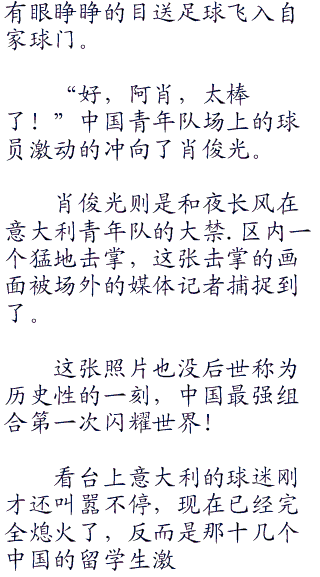 有眼睁睁的目送足球飞入自
家球门。
“好，阿肖，太棒
了！”中国青年队场上的球
员激动的冲向了肖俊光。
肖俊光则是和夜长风在
意大利青年队的大禁.区内一
个猛地击掌，这张击掌的画
面被场外的媒体记者捕捉到
了。
这张照片也没后世称为
历史性的一刻，中国最强组
合第一次闪耀世界！
看台上意大利的球迷刚
才还叫嚣不停，现在已经完
全熄火了，反而是那十几个
中国的留学生激